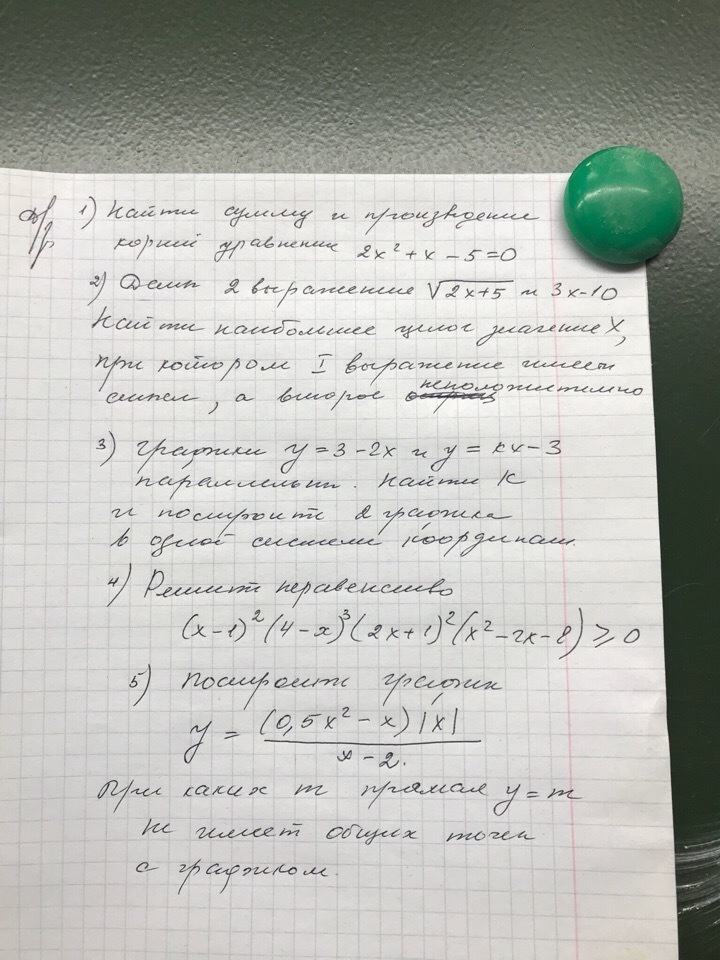 д/р 1) Найти сумму и произведение
корней уравнения 2x² + x − 5 = 0
2) Даны 2 выражения √2x+5 и 3x−10
Найти наибольшее целое значение x,
при котором I выражение имеет
смысл, а второе неположительно
3) Графики y = 3 − 2x и y = kx − 3
параллельны. Найти k
и построить 2 графика
в одной системе координат.
4) Решить неравенство
(x−1)² (4−x)³ (2x+1)² (x²−2x−8) ≥ 0
5) Построить график
y = (0,5x² − x) |x| / x − 2.
При каких m прямая y = m
не имеет общих точек
с графиком.